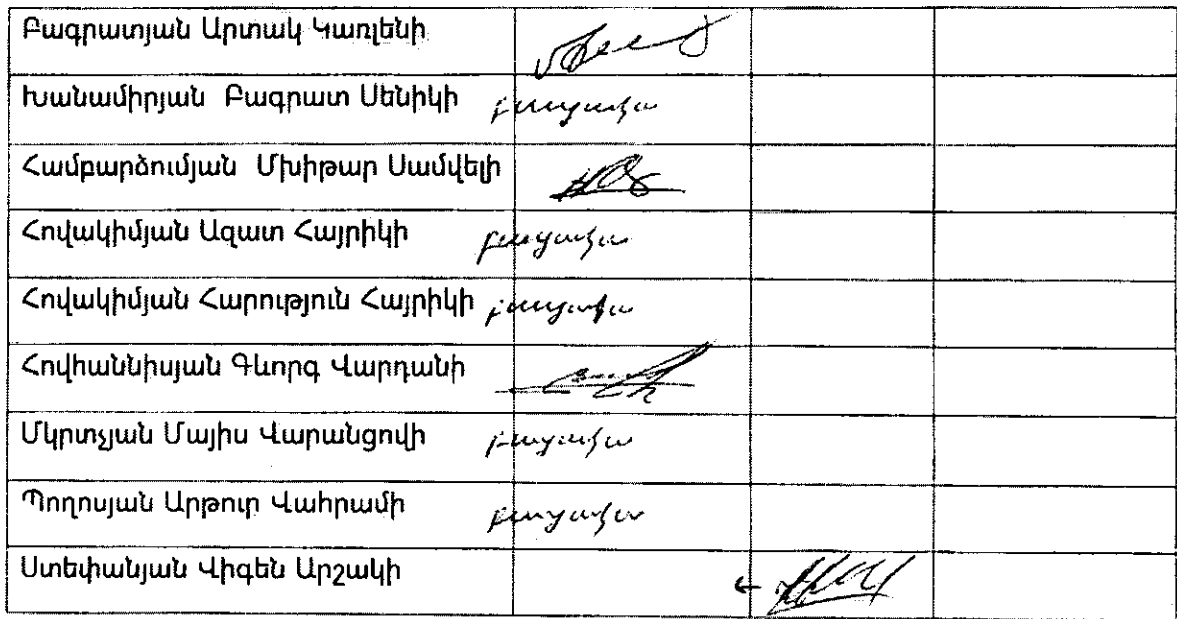 Բագրատյան Արտակ Կառլենի
Խանամիրյան Բագրատ Սենիկի բացակա
Համբարձումյան Մխիթար Սամվելի
Հովակիմյան Ազատ Հայրիկի բացակա
Հովակիմյան Հարություն Հայրիկի բացակա
Հովհաննիսյան Գևորգ Վարդանի
Մկրտչյան Մայիս Վարանցովի բացակա
Պողոսյան Արթուր Վահրամի բացակա
Ստեփանյան Վիգեն Արշակի